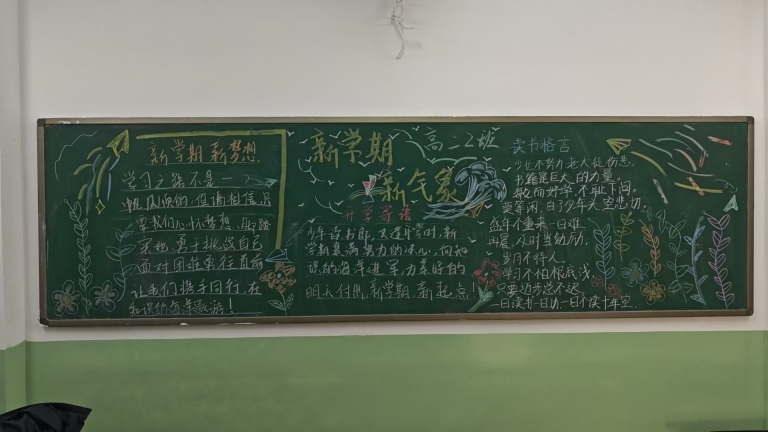 新学期 新梦想
学习之旅不是一
帆风顺的,但请相信只
要我们心怀梦想,脚踏
实地,勇于挑战自己
面对困难勇往直前
让我们携手同行,在
知识的海洋遨游!
新学期
高二2班
新气象
开学寄语
少年读书郎,又逢开学时,新
学期装满努力的决心,向知
识的海洋进军,为美好的
明天付出,新学期,新起点!
读书格言
少也不努力老大徒伤悲,
书籍是巨大的力量。
敏而好学,不耻下问。
莫等闲,白了少年头空悲切。
盛年不重来,一日难
再晨,及时当勉励,
岁月不待人。
学习不怕根底浅,
只要迈步总不迟
一日读书一日功,一日不读十年空